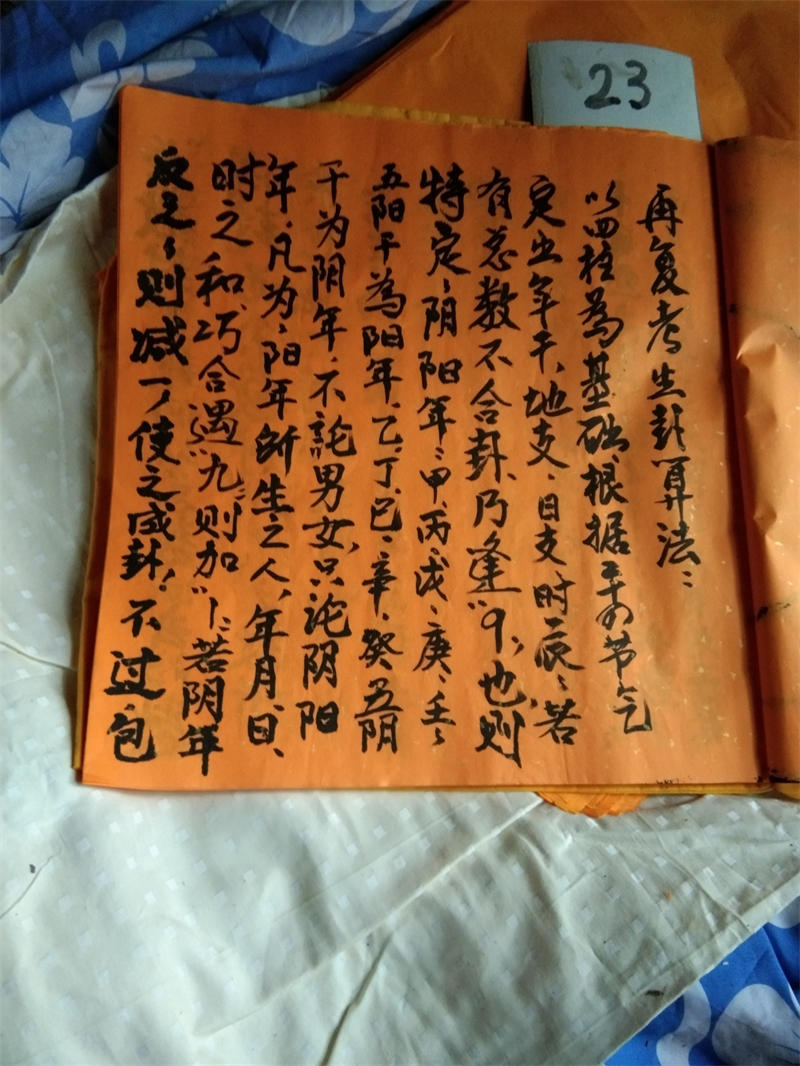 23
再复考生卦算法：
以四柱為基础，根据年的节气
定出年干、地支、日支时辰、若
有总数不合卦、乃逢"9"，也则
特定、阴阳年：甲、丙、戊、庚、壬、
五阳干為阳年、乙、丁、巳、辛、癸五阴
干为阴年，不論男女，只论阴阳
年，凡为、阳年所生之人，年月、日、
时之和、巧合遇"九"，则加"1"：若阴年
反之，则减一，使之成卦！不过，包